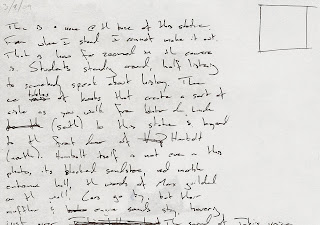 There is a name @ the base of this statue
From where I stand I cannot make it out.
That is how far zoomed in the camera
is. Students study around, half listening
to somebody speak about history. There
are tables of books that create a sort of
aisle as you walk from Unter den Linden
(south) to this statue & beyond
to the front door of Humboldt
(north). Humboldt itself is not even in this
photo, its blackened sandstone, red marble
entrance hall, the words of Marx gilded
on the wall. Cars go by, but their
muffled & sounds stay, hovering
just over The sound of